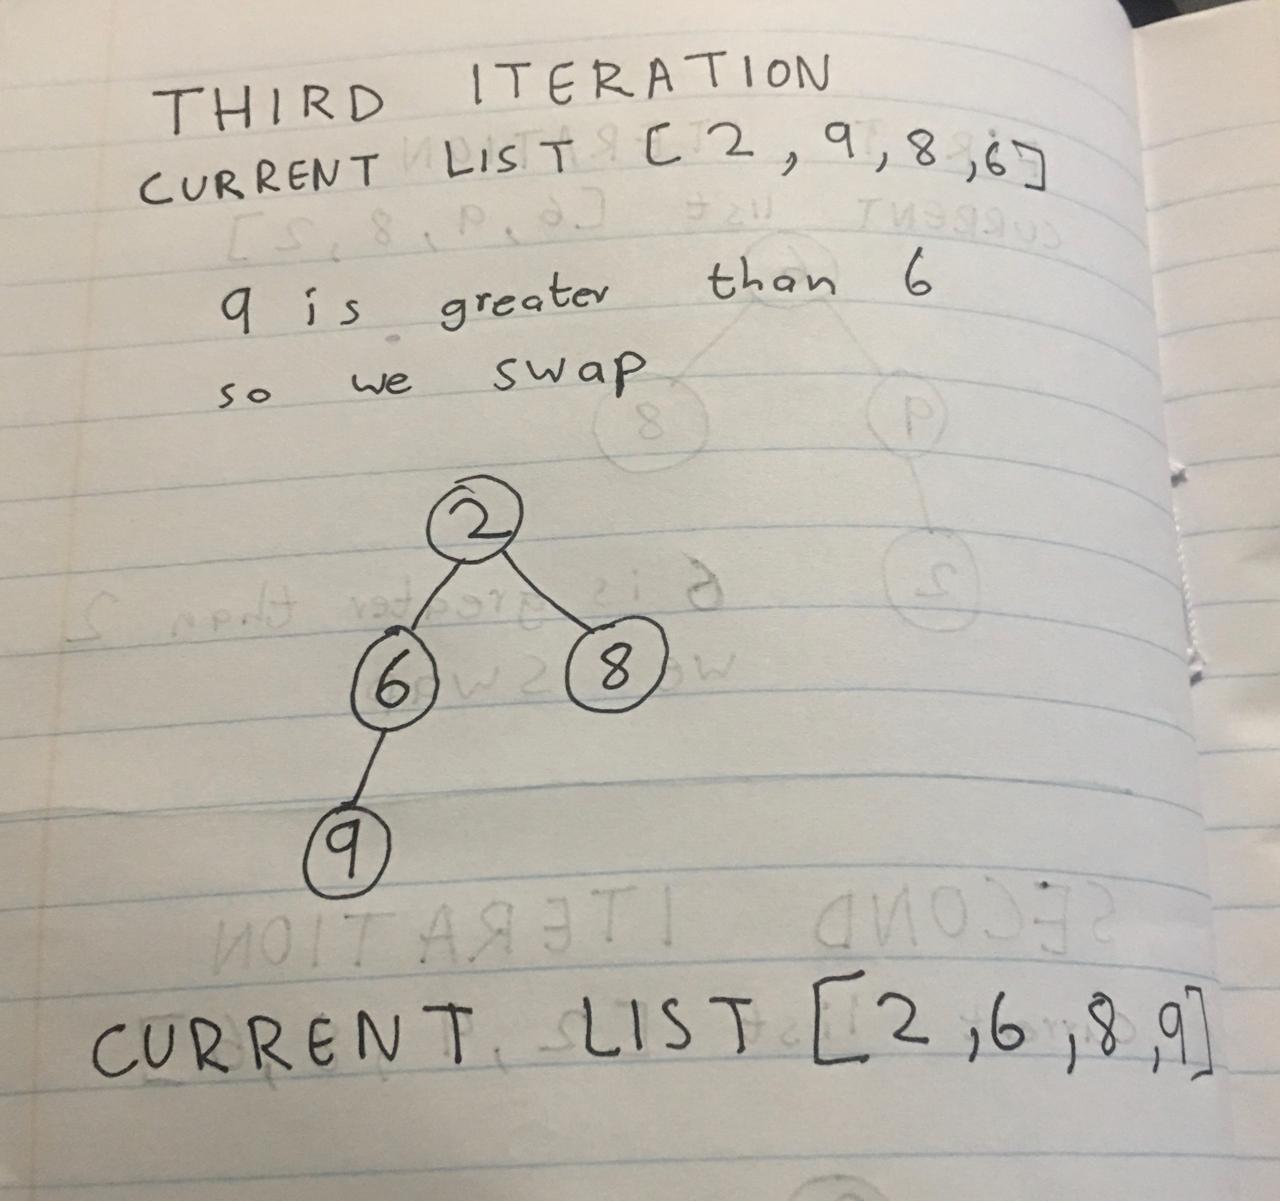 THIRD ITERATION
CURRENT LIST [2, 9, 8, 6]
9 is greater than 6
so we swap
2
6 8
9
CURRENT LIST [2, 6, 8, 9]